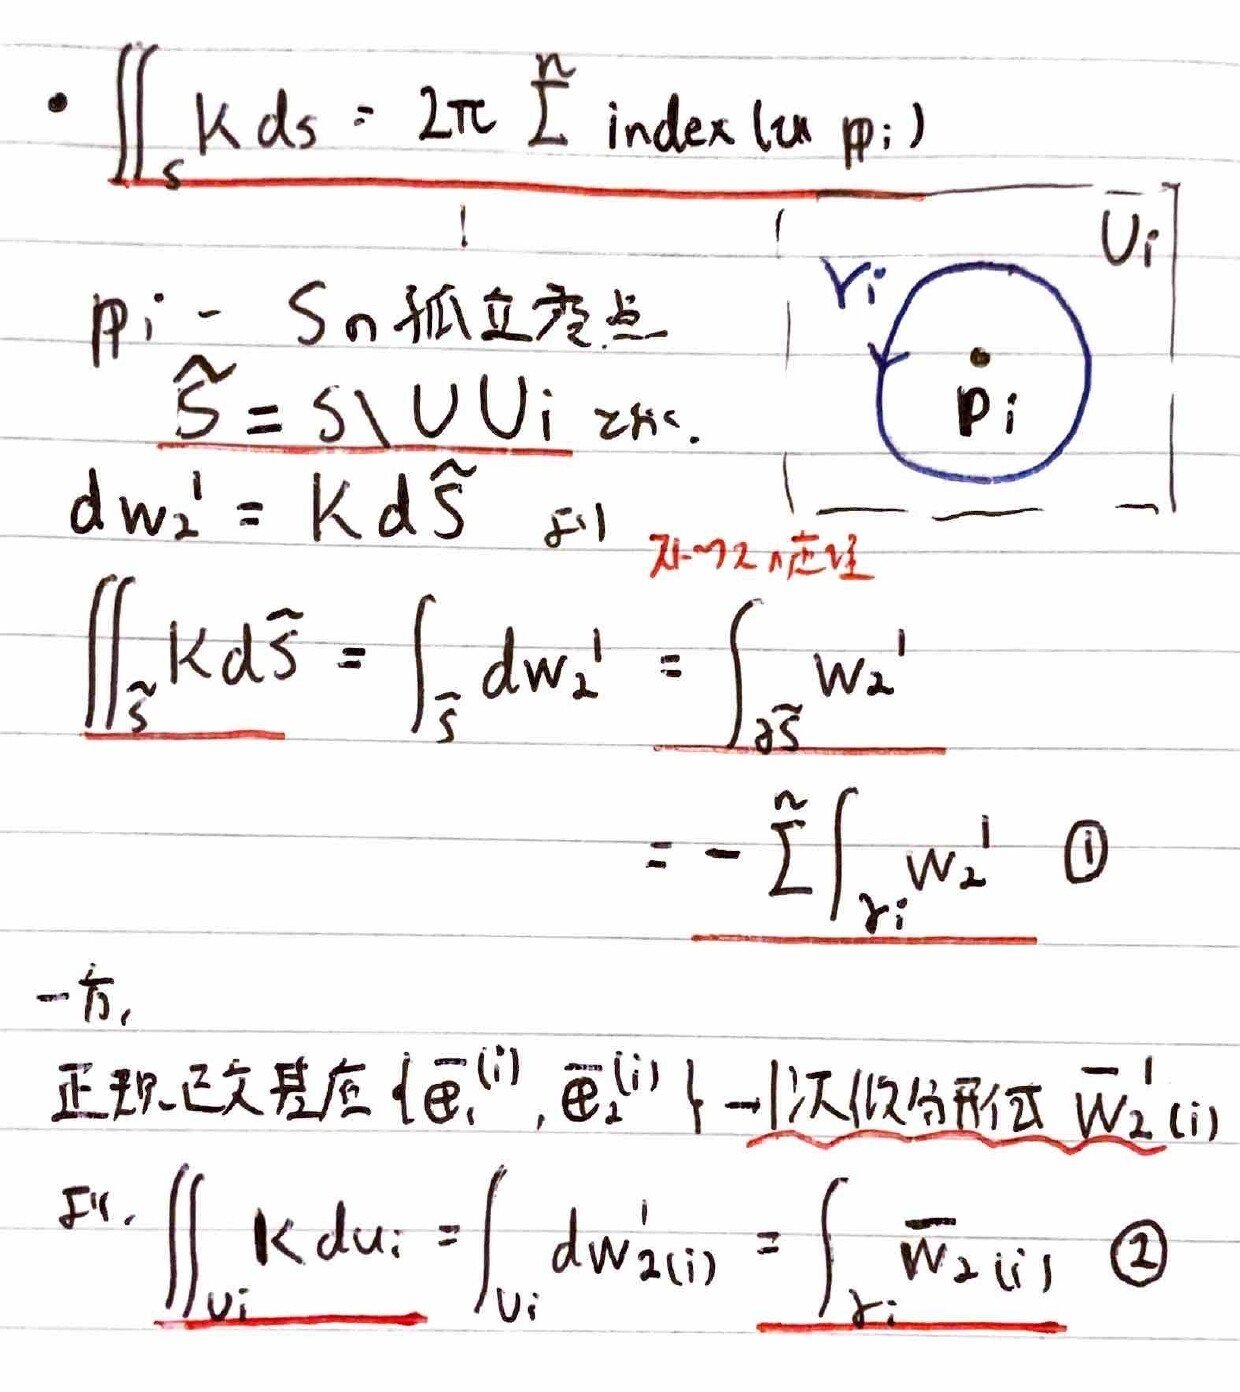 • ∬_S K ds = 2π Σ^n index(in p_i)
Ūi
γi
p_i - Sの孤立零点
S̃ = S \ ∪Ui とおく.
p_i
dw₂¹ = K dS̃ より
ストークスの定理
∬_S̃ K dS̃ = ∫_S̃ dw₂¹ = ∫_∂S̃ w₂¹
= - Σ^n ∫_γi w₂¹ ①
一方,
正規直交基底 {ē₁^(i), ē₂^(i)} → 1次微分形式 w̄₂¹(i)
より. ∬_Ui K du_i = ∫_Ui dw₂¹(i) = ∫_γi w̄₂(i) ②